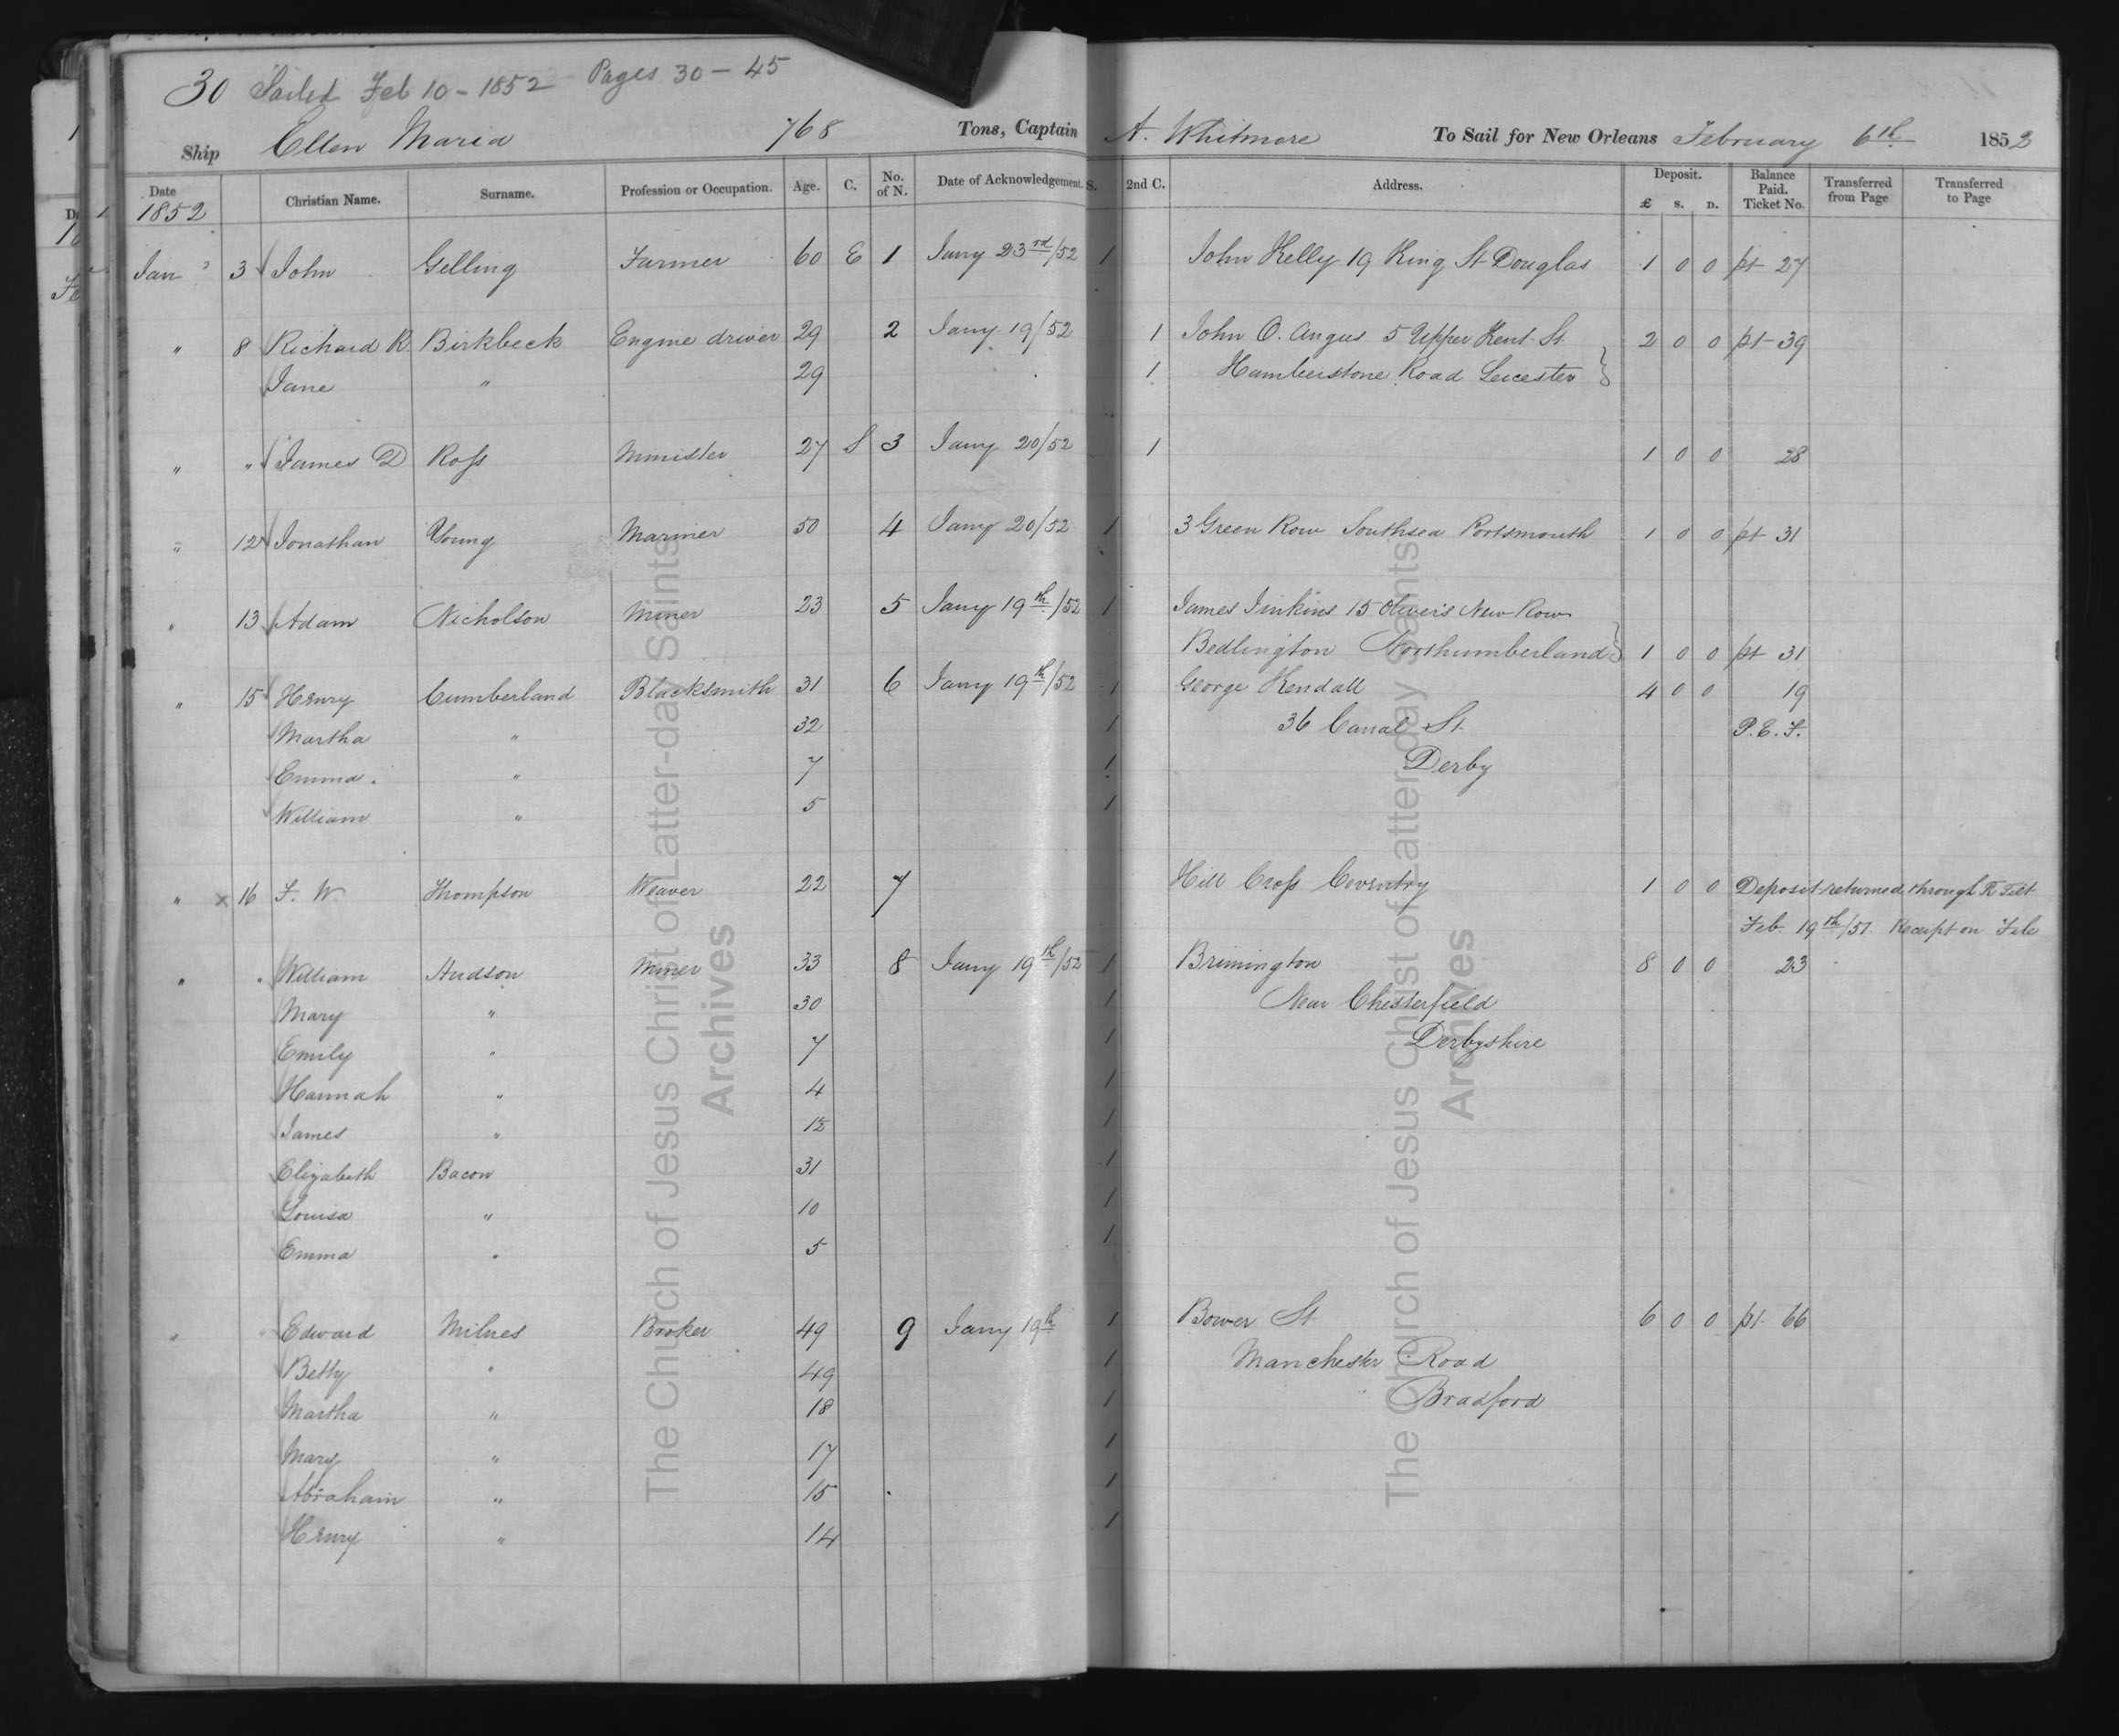 30 Sailed Feb 10 - 1852 Pages 30 - 45
Ship Ellen Maria 768 Tons, Captain A. Whitmore To Sail for New Orleans February 6th 1852
Date Christian Name. Surname. Profession or Occupation. Age. C. No. of N. Date of Acknowledgement. S. 2nd C. Address. Deposit. £ S. D. Balance Paid. Ticket No. Transferred from Page Transferred to Page
1852
Jan 3 John Gelling Farmer 60 E 1 Jany 23rd/52 1 John Kelly 19 King St Douglas 1 0 0 pt 27
" 8 Richard R. Birkbeck Engine driver 29 2 Jany 19/52 1 John O. Angus 5 Upper Kent St. 2 0 0 pt 39
Jane " 29 1 Humberstone Road Leicester }
" " James D Ross Minister 27 S 3 Jany 20/52 1 1 0 0 28
" 12 Jonathan Young Mariner 50 4 Jany 20/52 1 3 Green Row Southsea Portsmouth 1 0 0 pt 31
" 13 Adam Nicholson Miner 23 5 Jany 19th/52 1 James Jinkins 15 Oliver's New Row
Bedlington Northumberland } 1 0 0 pt 31
" 15 Henry Cumberland Blacksmith 31 6 Jany 19th/52 1 George Kendall 4 0 0 19
Martha " 32 1 36 Canal St. P.E.F.
Emma " 7 1 Derby
William " 5 1
" x 16 F. W. Thompson Weaver 22 7 Hill Cross Coventry 1 0 0 Deposit returned through R Tilt
Feb. 19th/51. Receipt on File
" " William Hudson Miner 33 8 Jany 19th/52 1 Brimington 8 0 0 23
Mary " 30 1 Near Chesterfield
Emily " 7 1 Derbyshire
Hannah " 4 1
James " 1½ 1
Elizabeth Bacon 31 1
Louisa " 10 1
Emma " 5 1
" " Edward Milnes Broker 49 9 Jany 19th 1 Bower St 6 0 0 pt 66
Betty " 49 1 Manchester Road
Martha " 18 1 Bradford
Mary " 17 1
Abraham " 15 1
Henry " 14 1
The Church of Jesus Christ of Latter-day Saints
Archives
The Church of Jesus Christ of Latter-day Saints
Archives